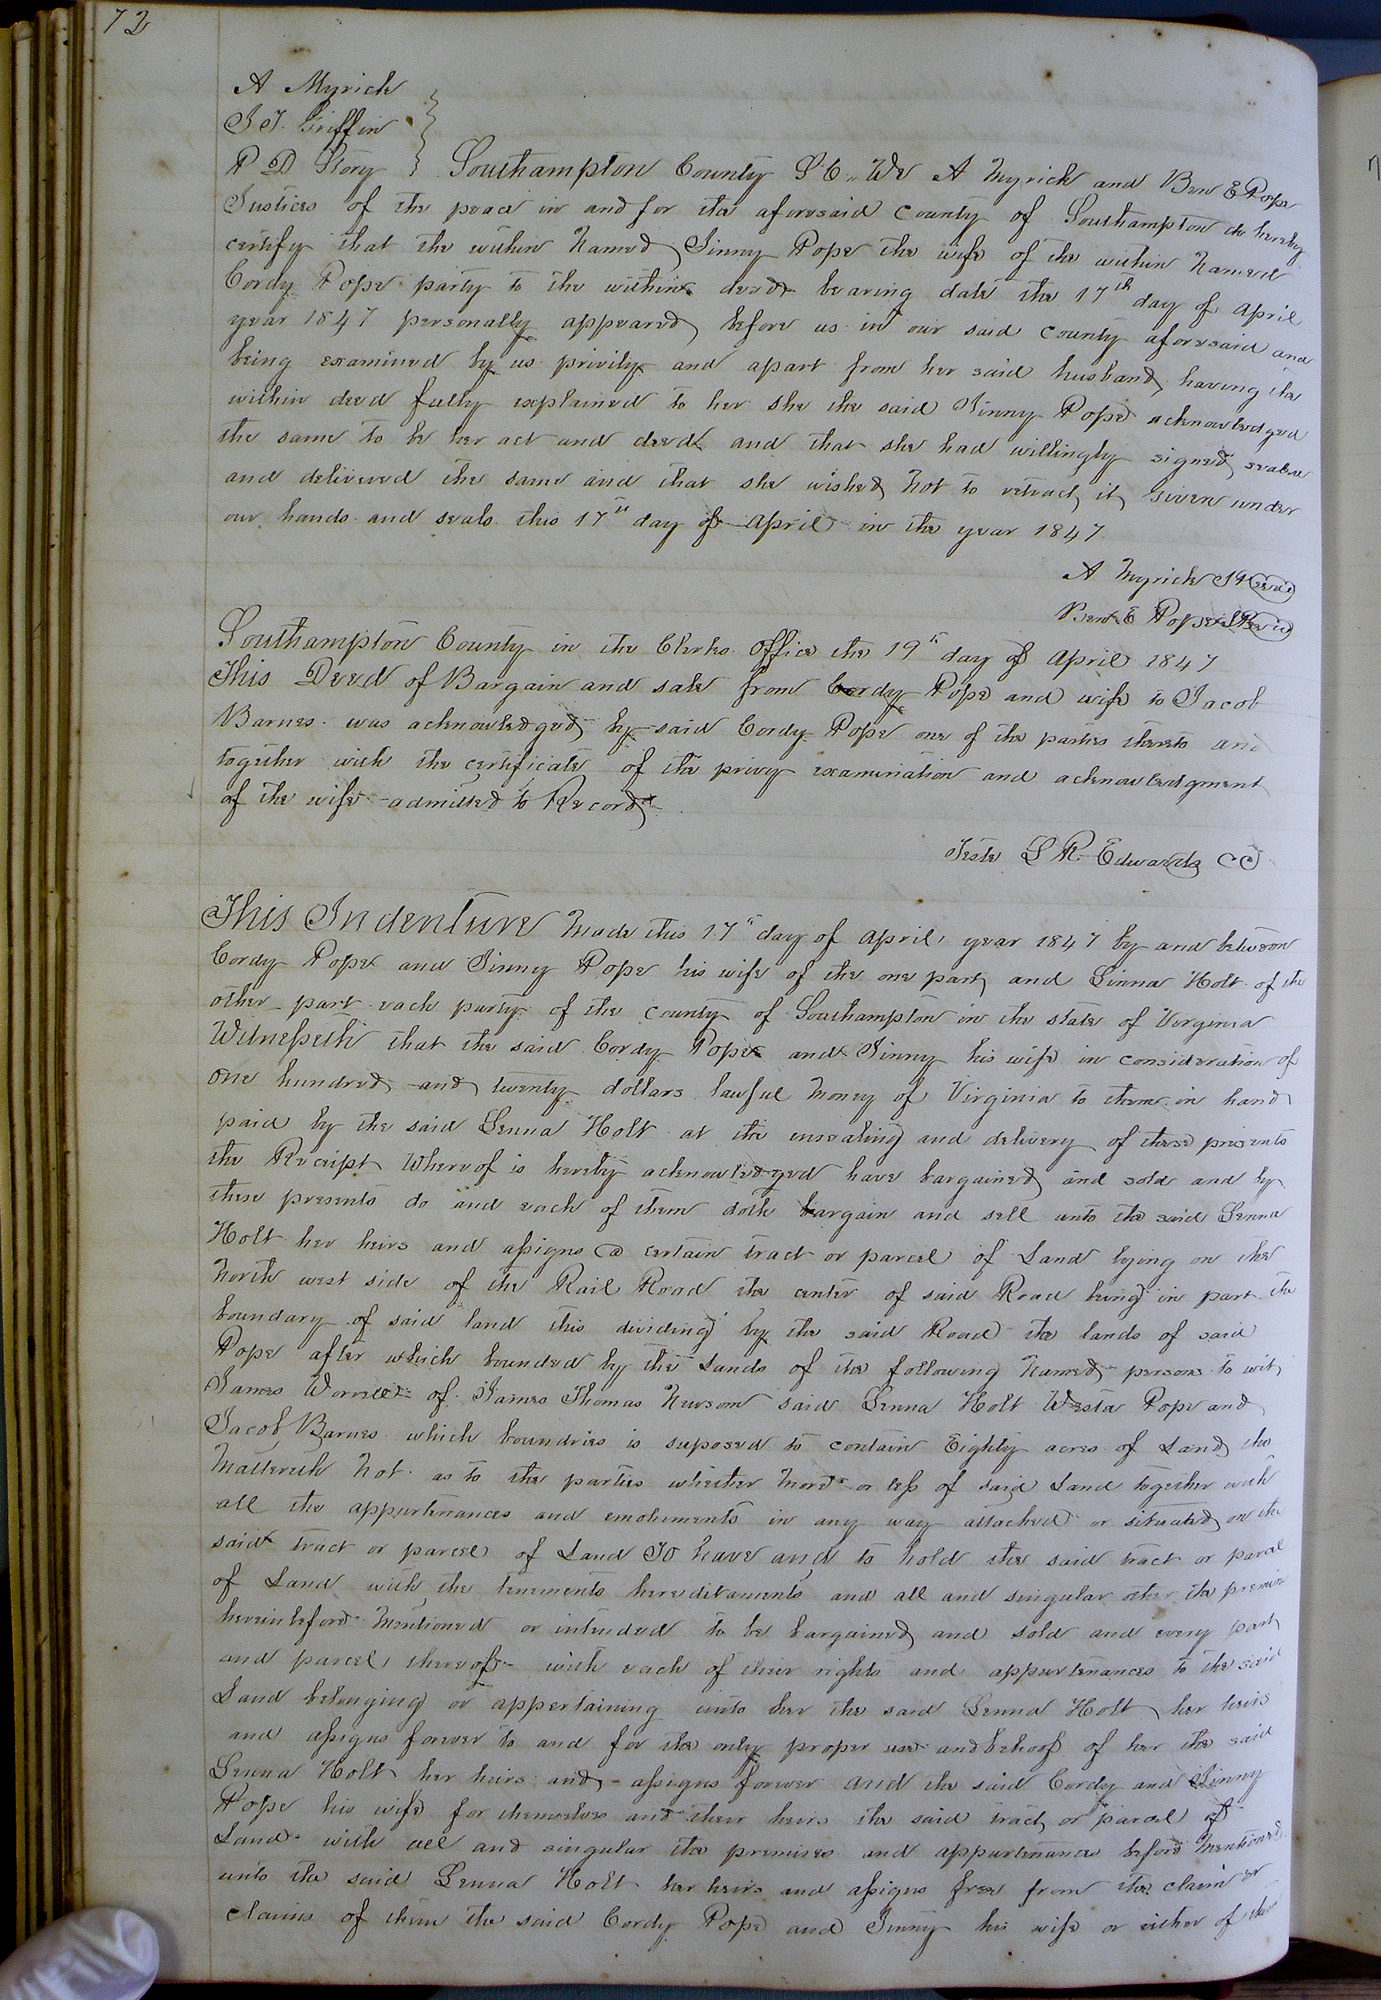 72
A Myrick
J. T. Griffin
R D Story } Southampton County S.C. We A Myrick and Ben E Pope
Justices of the peace in and for the aforesaid county of Southampton do hereby
certify that the within Named Jinny Pope the wife of the within Named
Cordy Pope party to the within deed bearing date the 17th day of April
year 1847 personally appeared before us in our said county aforesaid and
being examined by us privily and apart from her said husband having the
within deed fully explained to her she the said Jinny Pope acknowledged
the same to be her act and deed and that she had willingly signed sealed
and delivered the same and that she wished not to retract it, Given under
our hands and seals this 17th day of April in the year 1847
A Myrick JP (Seal)
Ben E Pope JP (Seal)
Southampton County in the Clerks Office the 19th day of April 1847
This Deed of Bargain and sale from Cordy Pope and wife to Jacob
Barnes was acknowledged by said Cordy Pope one of the parties thereto and
together with the certificate of the privy examination and acknowledgment
of the wife admitted to Record
Teste L R Edwards CC
This Indenture Made this 17th day of April, year 1847 by and between
Cordy Pope and Jinny Pope his wife of the one part and Linna Holt of the
other part each party of the county of Southampton in the state of Virginia
Witnesseth that the said Cordy Pope and Jinny his wife in consideration of
one hundred and twenty dollars lawful money of Virginia to them in hand
paid by the said Lenna Holt at the ensealing and delivery of these presents
the Receipt Whereof is hereby acknowledged have bargained and sold and by
these presents do and each of them doth bargain and sell unto the said Lenna
Holt her heirs and assigns a certain tract or parcel of Land lying on the
North west side of the Rail Road the center of said Road being in part the
boundary of said land this dividing by the said Road the lands of said
Pope after which bounded by the Lands of the following Named persons to wit,
James Worrell of James Thomas Newsom said Lenna Holt Westa Pope and
Jacob Barnes which boundries is suposed to contain Eighty acres of Land the
Mattereth Not as to the parties whether More or less of said Land together with
all the appurtenances and emoluments in any way attached or situated on the
said tract or parcel of Land To have and to hold the said tract or parcel
of Land with the tenements hereditaments and all and singular other the premises
hereinbefore Mentioned or intended to be bargained and sold and every part
and parcel thereof with each of their rights and appurtenances to the said
Land belonging or appertaining unto her the said Lenna Holt her heirs
and assigns forever to and for the only proper use and behoof of her the said
Lenna Holt her heirs and assigns forever and the said Cordy and Jinny
Pope his wife for themselves and their heirs the said tract or parcel of
Land with all and singular the premises and appurtenances before Mentioned
unto the said Lenna Holt her heirs and assigns free from the claim or
claims of them the said Cordy Pope and Jinny his wife or either of their